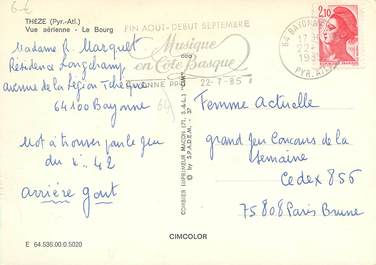 6-E
THEZE (Pyr.-Atl.)
Vue aérienne - Le Bourg
FIN AOUT-DEBUT SEPTEMBRE
Musique
en Côte Basque
22-7-85
64 BAYONNE
22-7
PYR. ATL.
2,10
Madame R. Marquet
Résidence Longchamp
avenue de la Légion Tchèque
64100 Bayonne
64
Mot à trouver par le jeu
du n° 42
arrière goût
E 64.536.00.0.5020
COMBIER IMPRIMEUR MACON (71, S.-&-L.) "CIM"
© by S.P.A.D.E.M. 37
Femme Actuelle
grand Jeu Concours de la
semaine
Cedex 856
75808 Paris Brune
CIMCOLOR